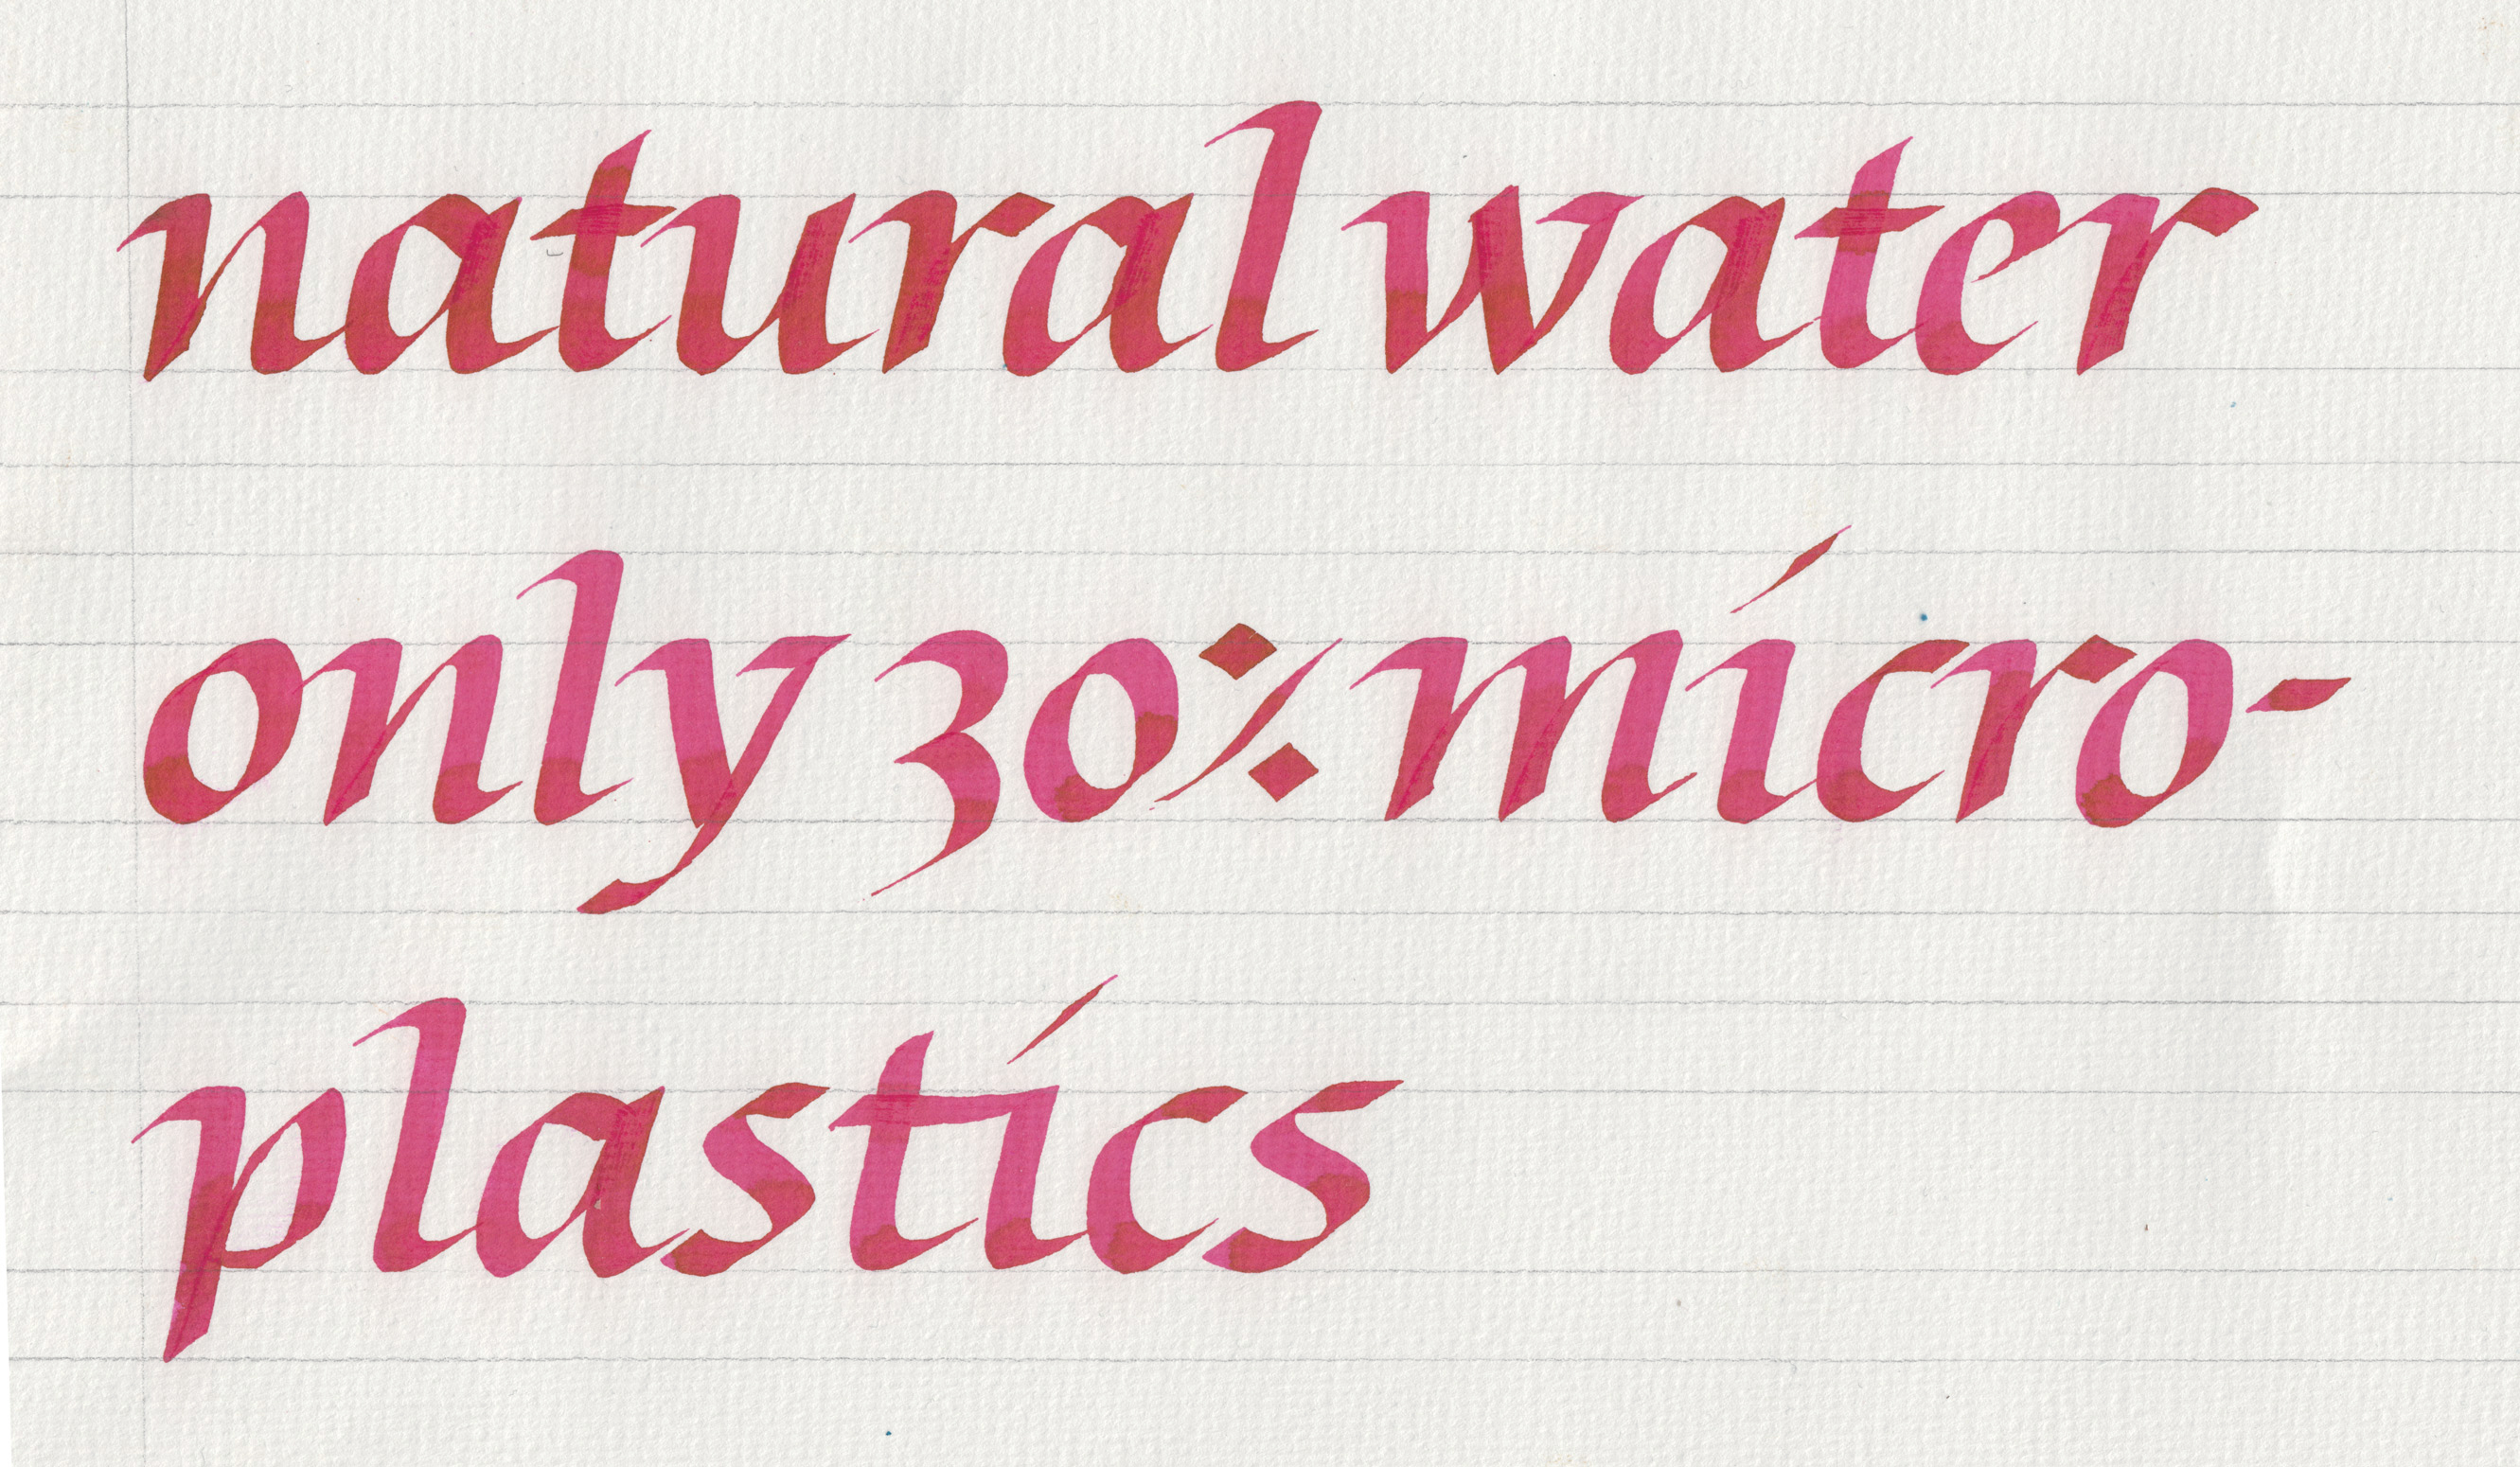 natural water
only 30% micro-
plastics